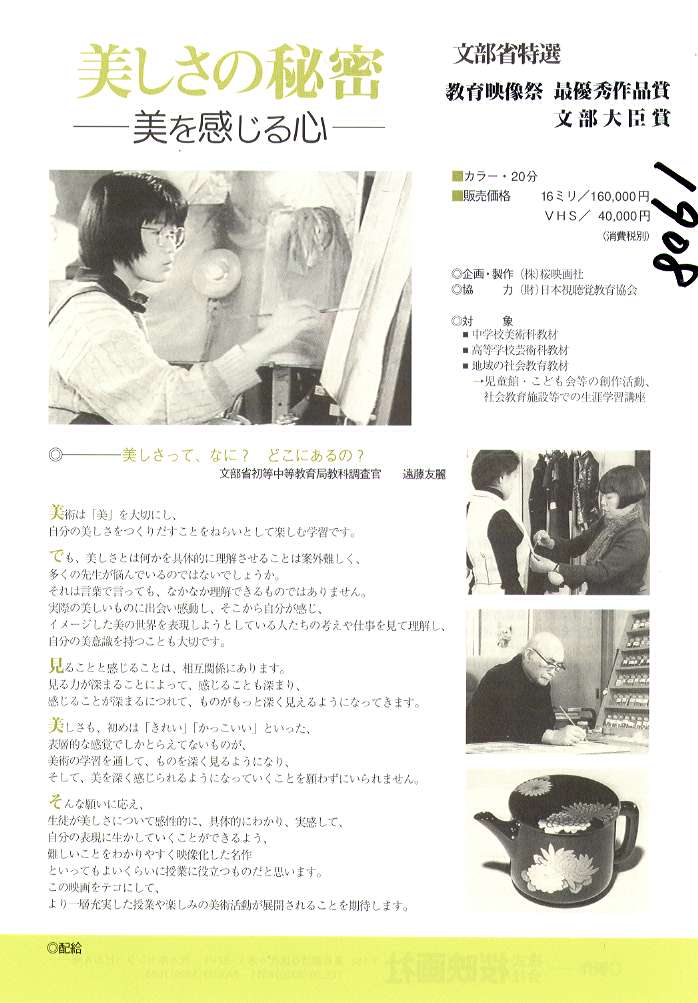 美しさの秘密
美を感じる心
文部省特選
教育映像祭 最優秀作品賞
文部大臣賞
1908
■カラー・20分
■販売価格 16ミリ／160,000円
VHS／ 40,000円
（消費税別）
◎企画・製作（株）桜映画社
◎協 力（財）日本視聴覚教育協会
◎対 象
■中学校美術科教材
■高等学校芸術科教材
■地域の社会教育教材
→児童館・こども会等の創作活動、
社会教育施設等での生涯学習講座
◎美しさって、なに？ どこにあるの？
文部省初等中等教育局教科調査官 遠藤友麗
美術は「美」を大切にし、
自分の美しさをつくりだすことをねらいとして楽しむ学習です。
でも、美しさとは何かを具体的に理解させることは案外難しく、
多くの先生が悩んでいるのではないでしょうか。
それは言葉で言っても、なかなか理解できるものではありません。
実際の美しいものに出会い感動し、そこから自分が感じ、
イメージした美の世界を表現しようとしている人たちの考えや仕事を見て理解し、
自分の美意識を持つことも大切です。
見ることと感じることは、相互関係にあります。
見る力が深まることによって、感じることも深まり、
感じることが深まるにつれて、ものがもっと深く見えるようになってきます。
美しさも、初めは「きれい」「かっこいい」といった、
表層的な感覚でしかとらえてないものが、
美術の学習を通して、ものを深く見るようになり、
そして、美を深く感じられるようになっていくことを願わずにいられません。
そんな願いに応え、
生徒が美しさについて感性的に、具体的にわかり、実感して、
自分の表現に生かしていくことができるよう、
難しいことをわかりやすく映像化した名作
といってもよいくらいに授業に役立つものだと思います。
この映画をテコにして、
より一層充実した授業や楽しみの美術活動が展開されることを期待します。
◎配給